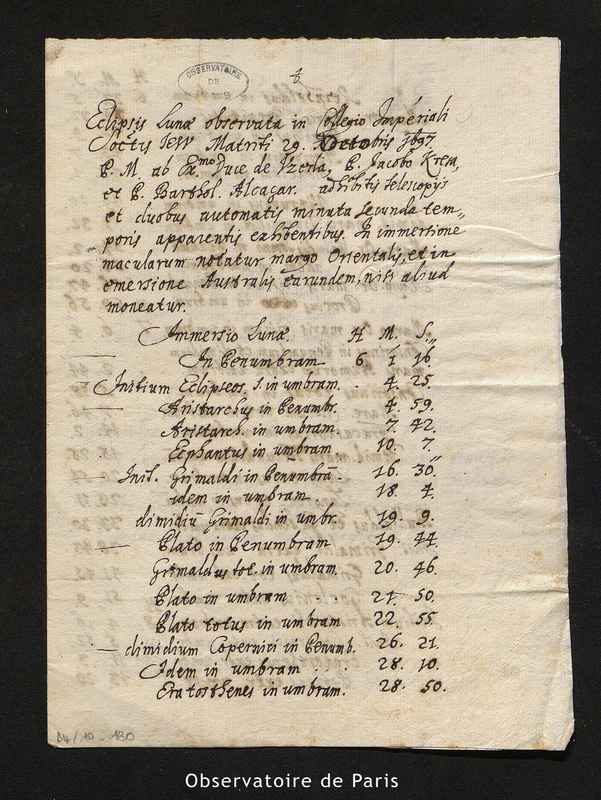 OBSERVATOIRE
DE
Eclipsis Lunæ observata in Collegio Imperiali
Soctis IESV Matriti 29. Octobris 1697
P. M. ab Exmo Duce de Vzeda, P. Jacobo Kresa,
et P. Barthol. Alcaçar. adhibitis telescopijs
et duobus automatis minuta secunda tem„
poris apparentis exhibentibus. In immersione
macularum notatur margo Orientalis, et in
emersione Australis earundem, nisi aliud
moneatur.
Immersio Lunæ. H M. S.
In Penumbram 6. 1 16
Initium Eclipseos, s. in umbram. . 4. 25.
Aristarchus in Penumbr. 4. 59.
Aristarch. in umbram. 7. 42
Ecphantus in umbram 10. 7.
Init. Grimaldi in Penumbrã. 16. 30.
idem in umbram. 18. 4.
dimidiũ Grimaldi in umbr. 19. 9.
Plato in Penumbram 19. 44.
Grimaldus tot. in umbram 20. 46.
Plato in umbram . . 21. 50.
Plato totus in umbram 22. 55.
dimidium Copernici in Penumb. 26. 21.
Idem in umbram . . . 28. 10.
Eratosthenes in umbram. 28. 50.
B4/10-130
Observatoire de Paris